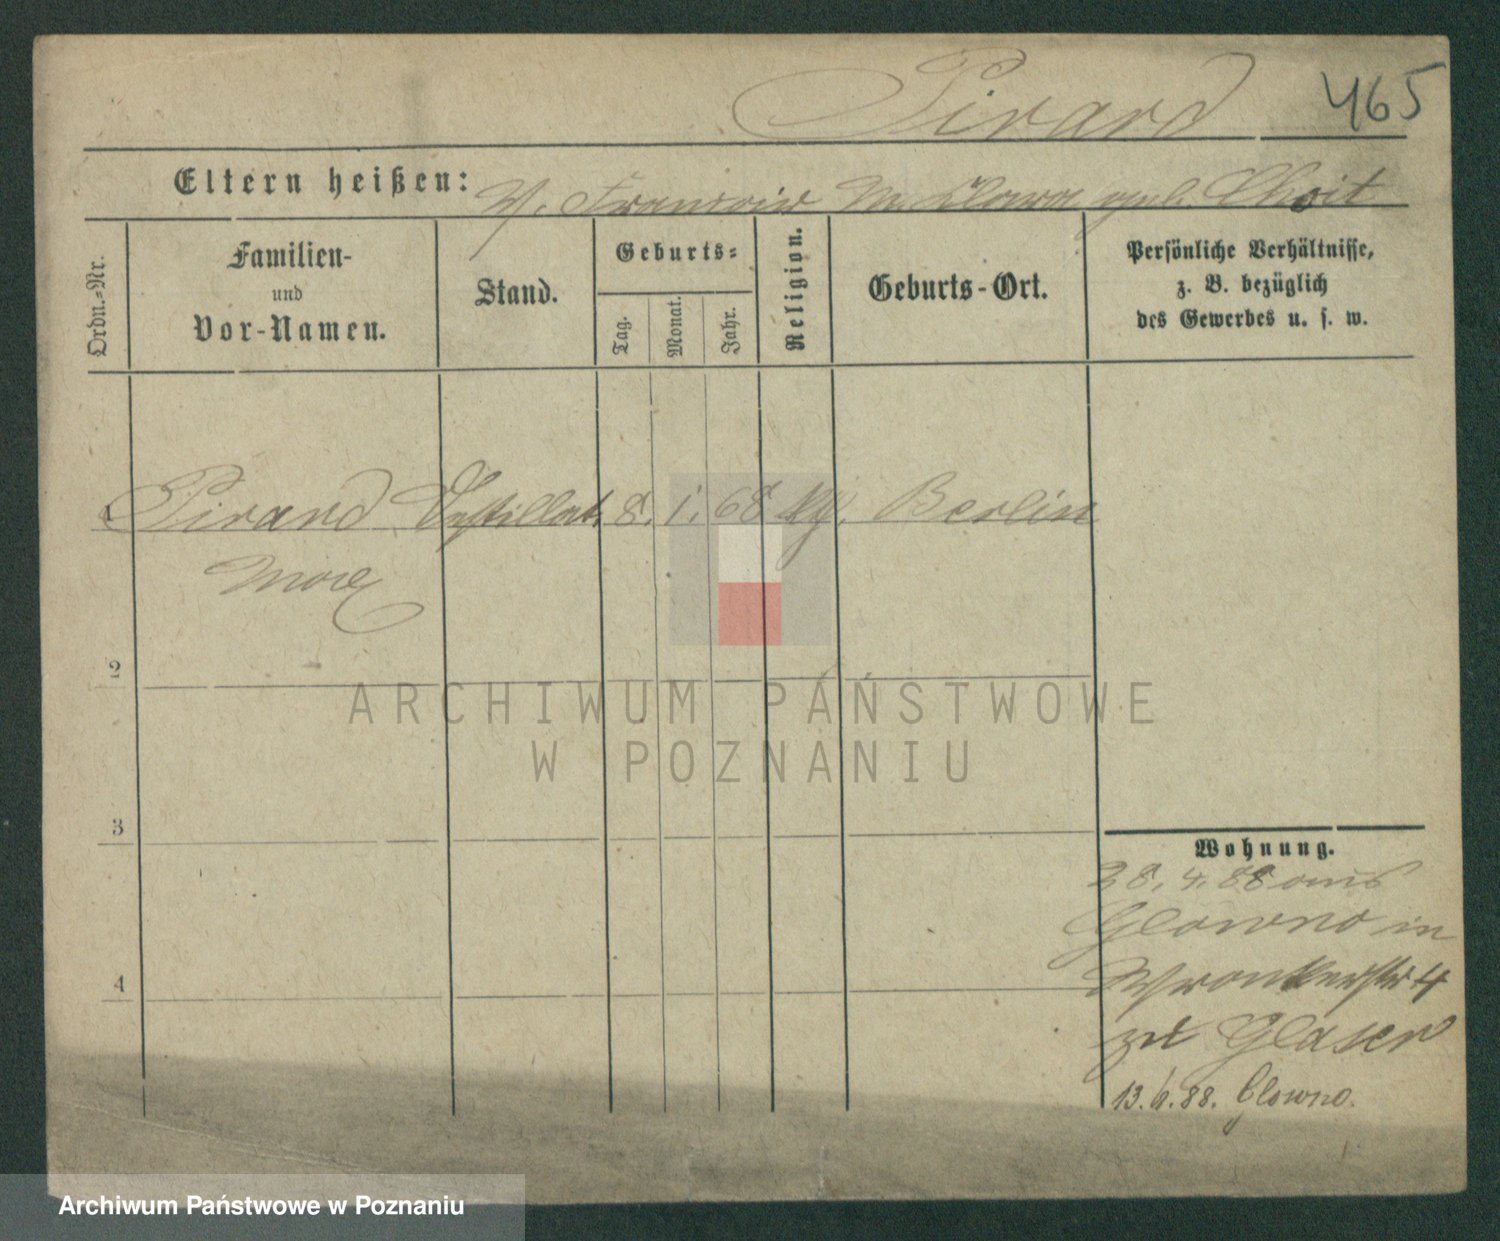 Pirard 465
Eltern heißen: V. Francois M. Clara geb. Choit
Ordn.=Nr.
Familien-
und
Vor-Namen.
Stand.
Geburts=
Tag.
Monat.
Jahr.
Religion.
Geburts-Ort.
Persönliche Verhältnisse,
z. B. bezüglich
des Gewerbes u. s. w.
1 Pirard Destillat. 8. 1. 68 Berlin
Max
2
3
4
Wohnung.
28. 4. 88 aus
Glowno in
Wronkerstr 4
zu Glaser
13. 6. 88. Glowno.
ARCHIWUM PAŃSTWOWE
W POZNANIU
Archiwum Państwowe w Poznaniu